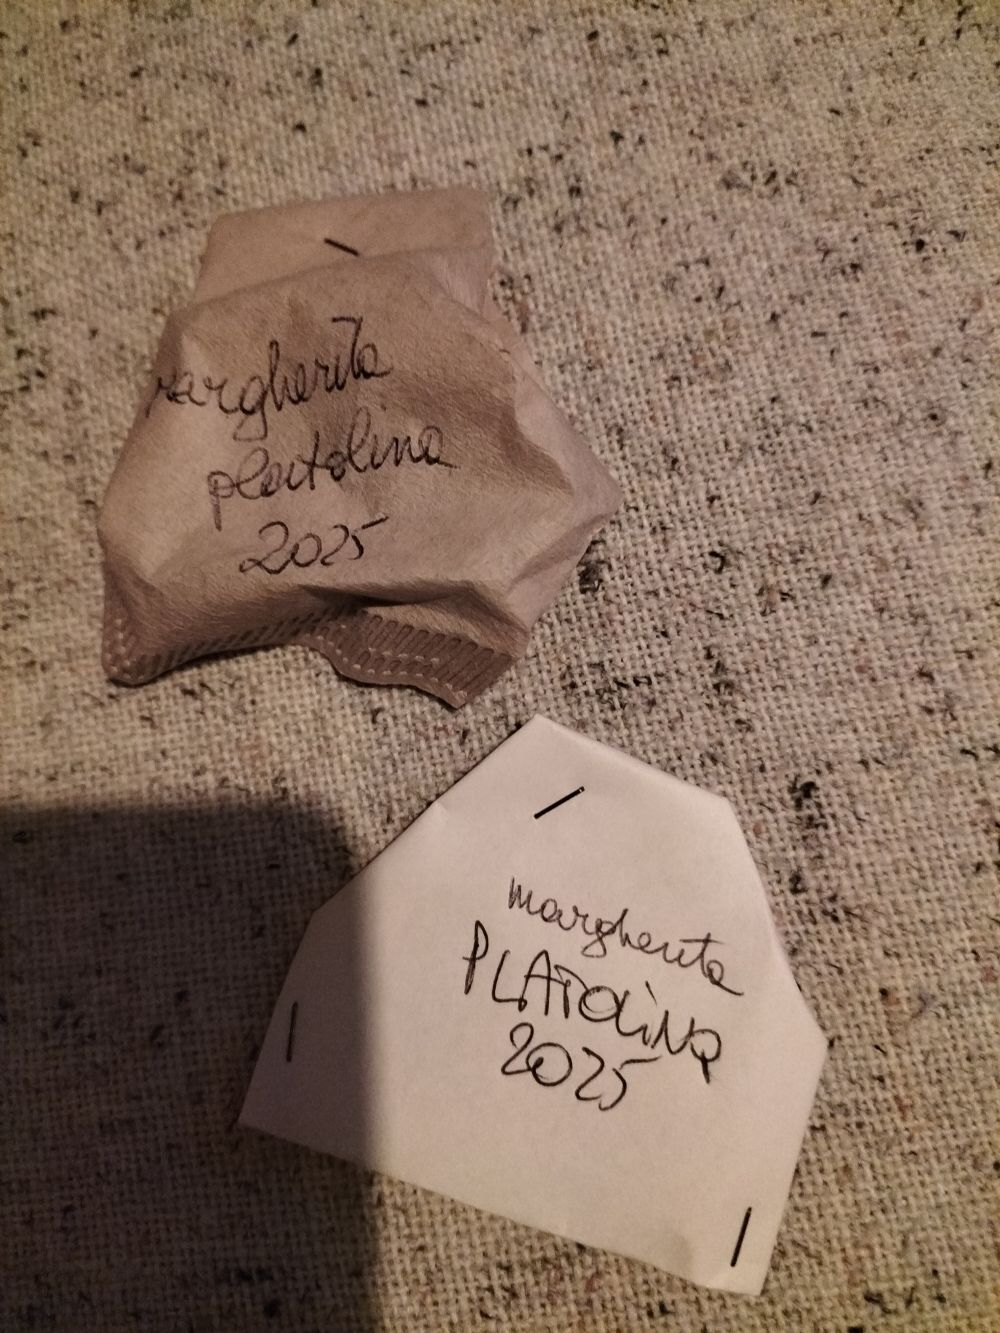 margherita
platolina
2025
margherita
PLATOLiNa
2025